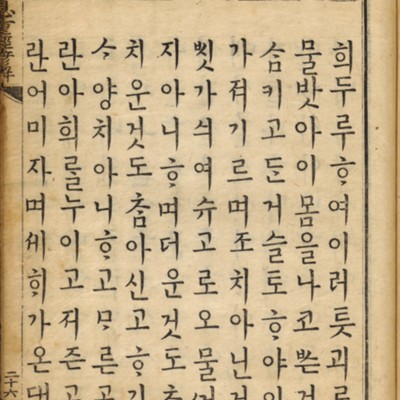 희두루ᄒᆞ여이러틋괴로
물밧아이몸을나코ᄲᅳᆫ
ᄉᆞᆷ키고ᄃᆞᆫ거슬토ᄒᆞ야
가져기르며조치아닌거
ᄲᅵᆺ가싀여슈고로오물
자아니ᄒᆞ며더운것도
치운것도ᄎᆞᆷ아신고ᄒᆞ기
ᄉᆞ양치아니ᄒᆞ고ᄆᆞ른고
란아희를누이고저즌고
란어미자며세ᄒᆡ가온대
二十六